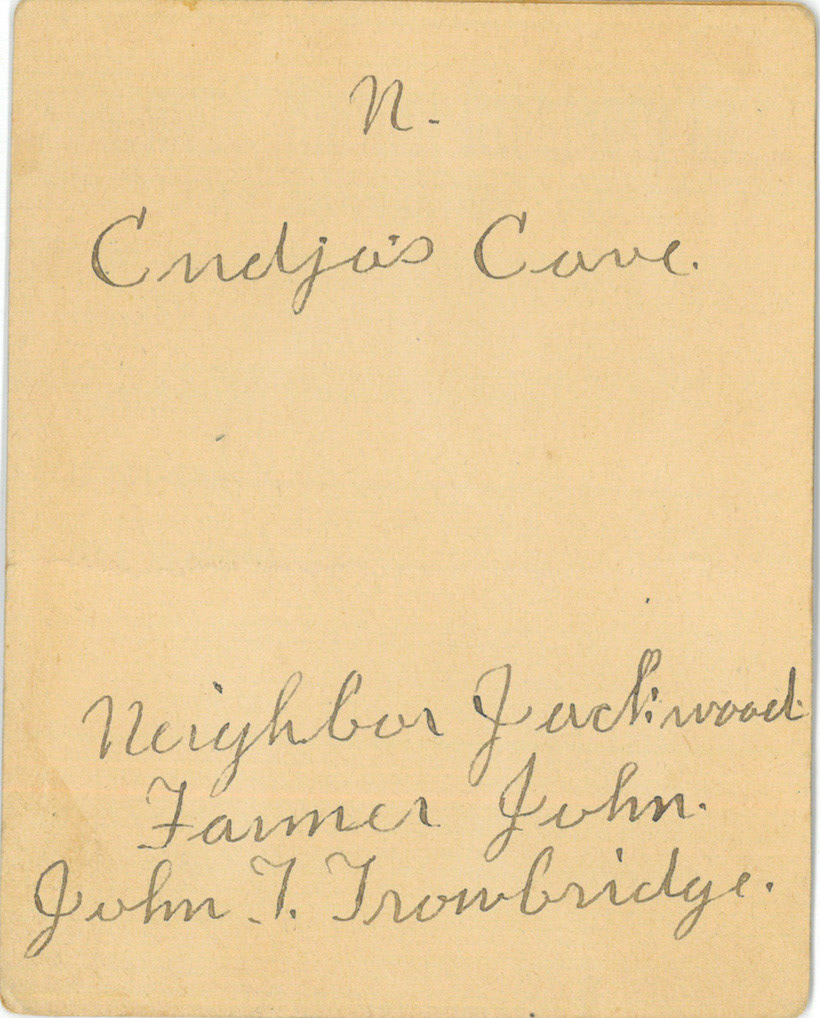 N.
Cudjo's Cave.
Neighbor Jackwood
Farmer John.
John T. Trowbridge.